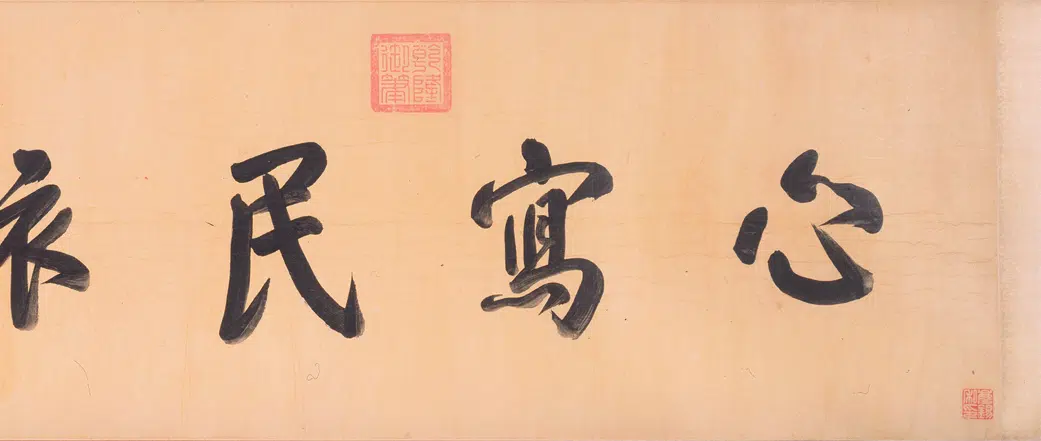 心寫民
乾隆御筆